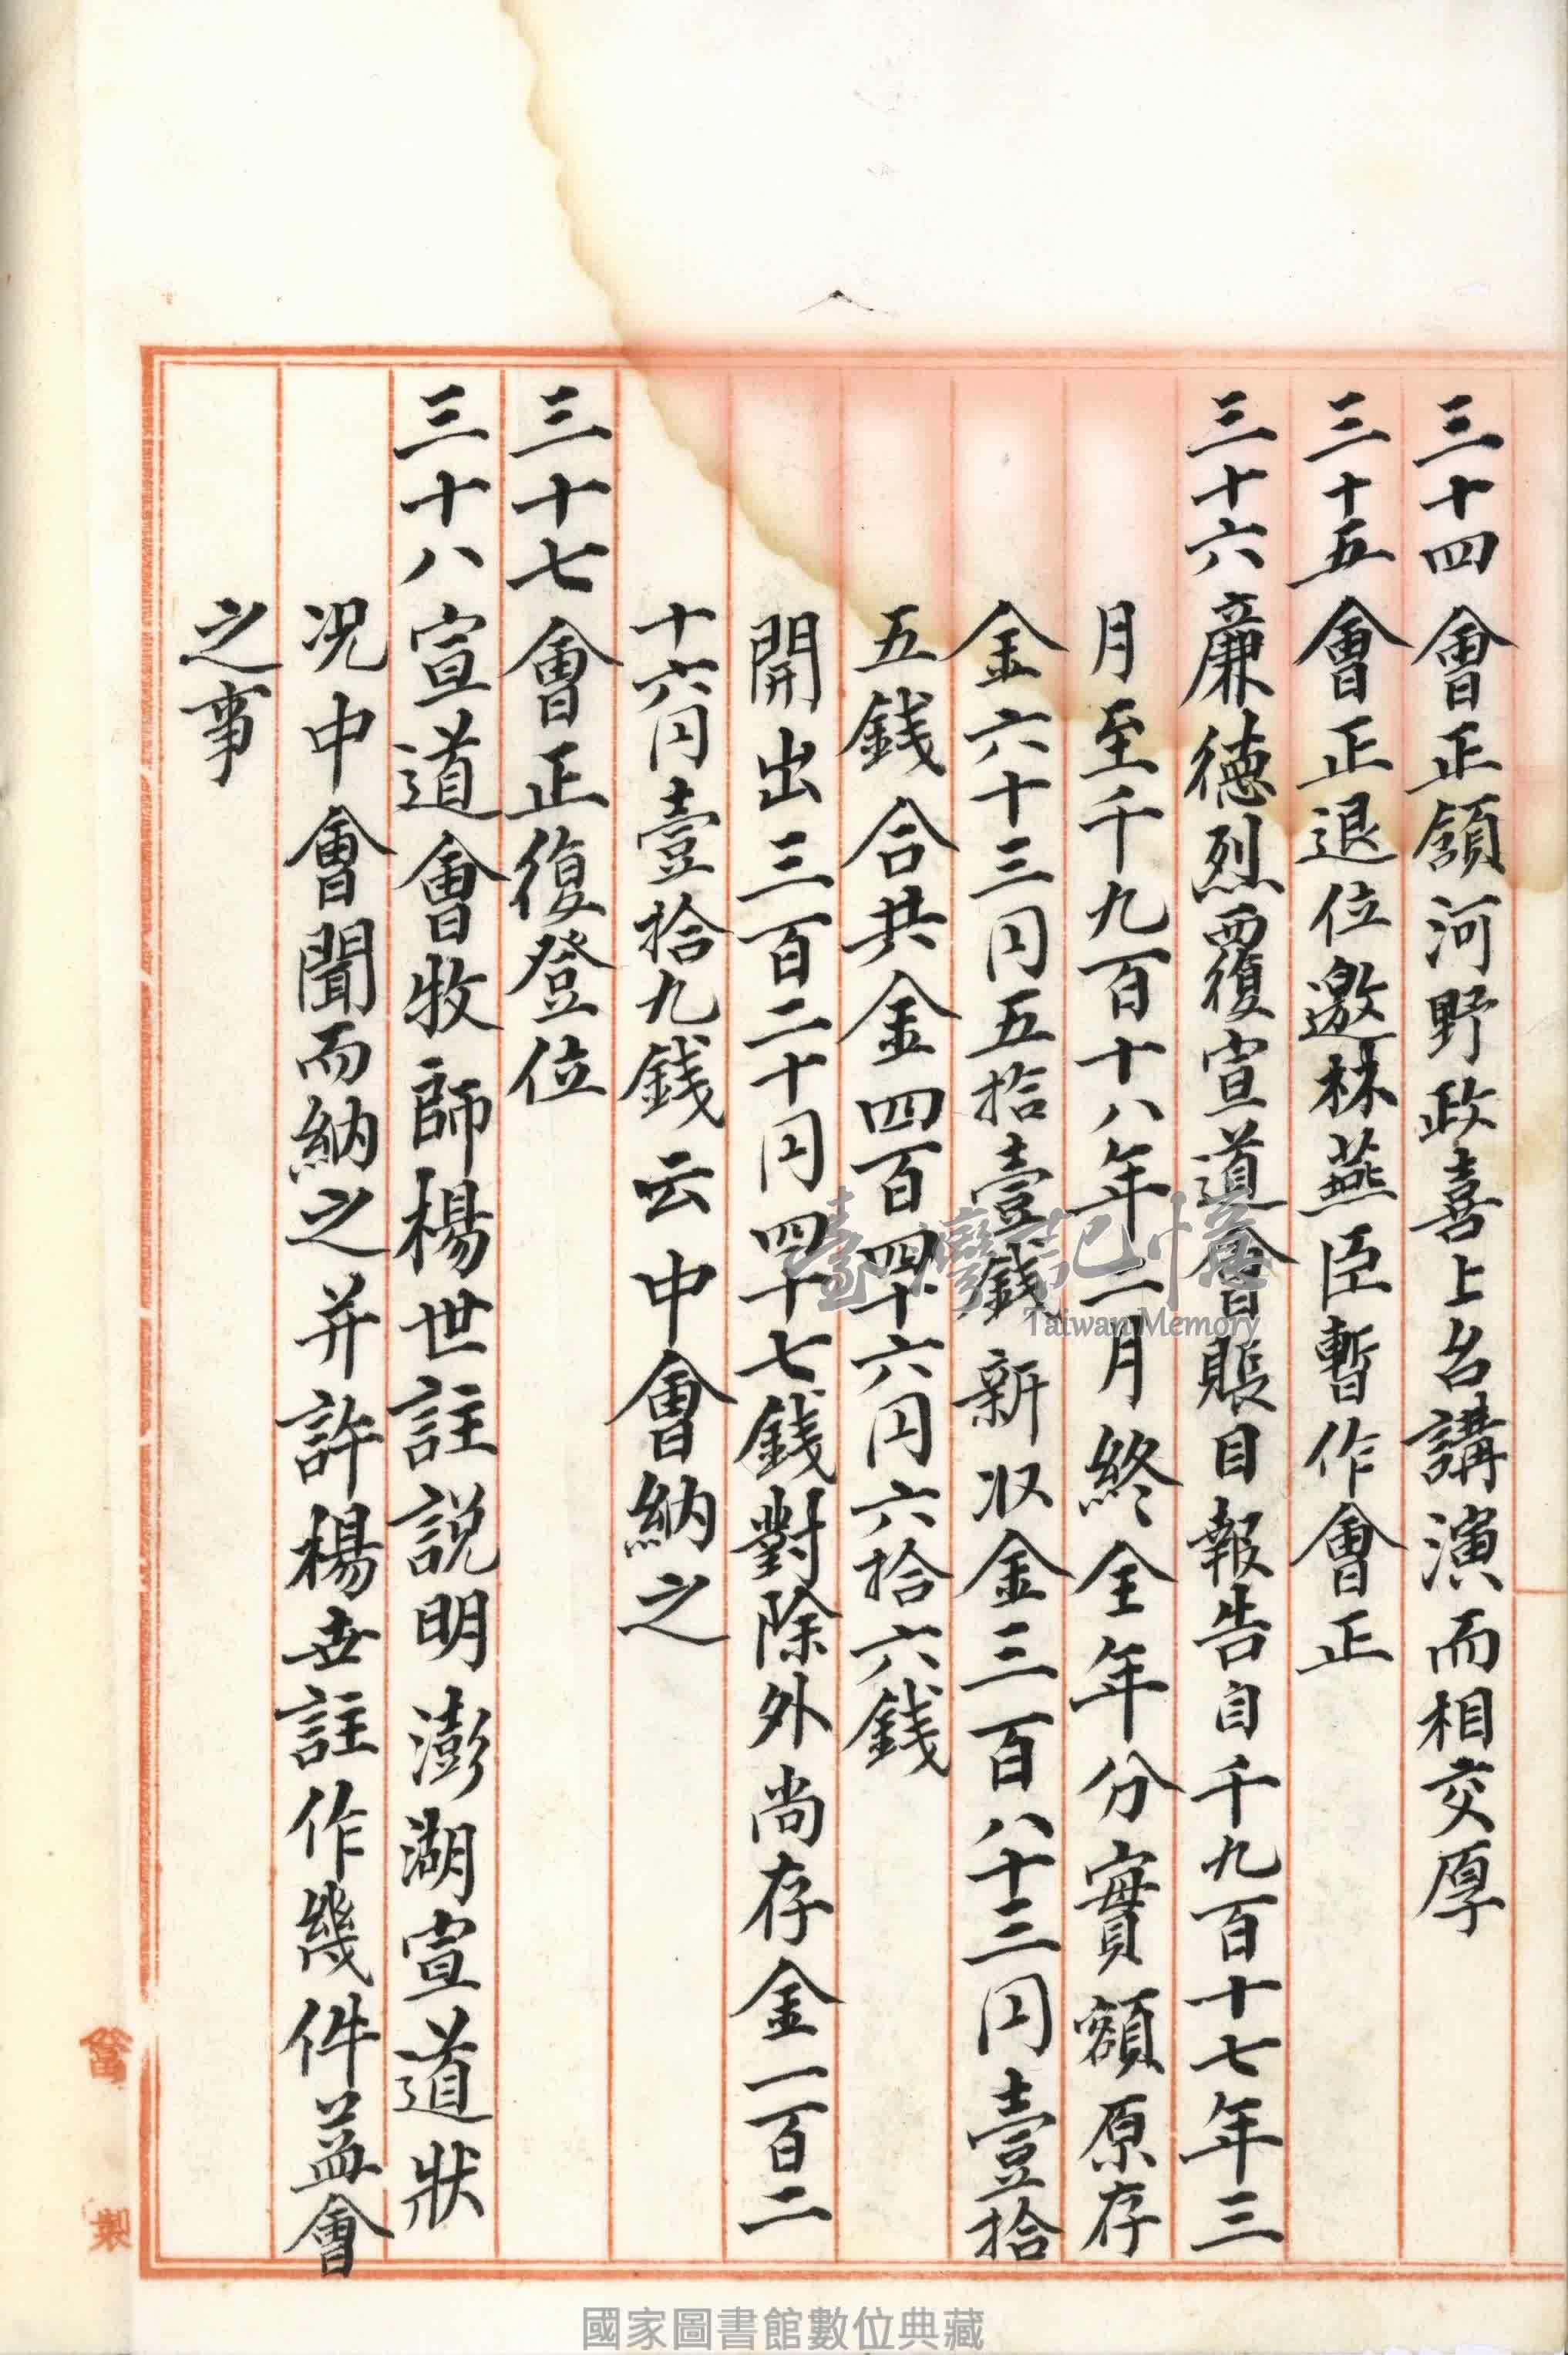 三十四會正領河野政喜上台講演而相交厚
三十五會正退位邀林燕臣暫作會正
三十六廉德烈覆宣道會賬目報告自千九百十七年三
月至千九百十八年二月終全年分實額原存
金六十三円五拾壹錢新収金三百八十三円壹拾
五錢合共金四百四十六円六拾六錢
開出三百二十円四十七錢對除外尚存金一百二
十六円壹拾九錢云中會納之
三十七會正復登位
三十八宣道會牧師楊世註説明澎湖宣道狀
况中會聞而納之并許楊世註作幾件益會
之事
製
臺灣記憶
Taiwan Memory
國家圖書館數位典藏